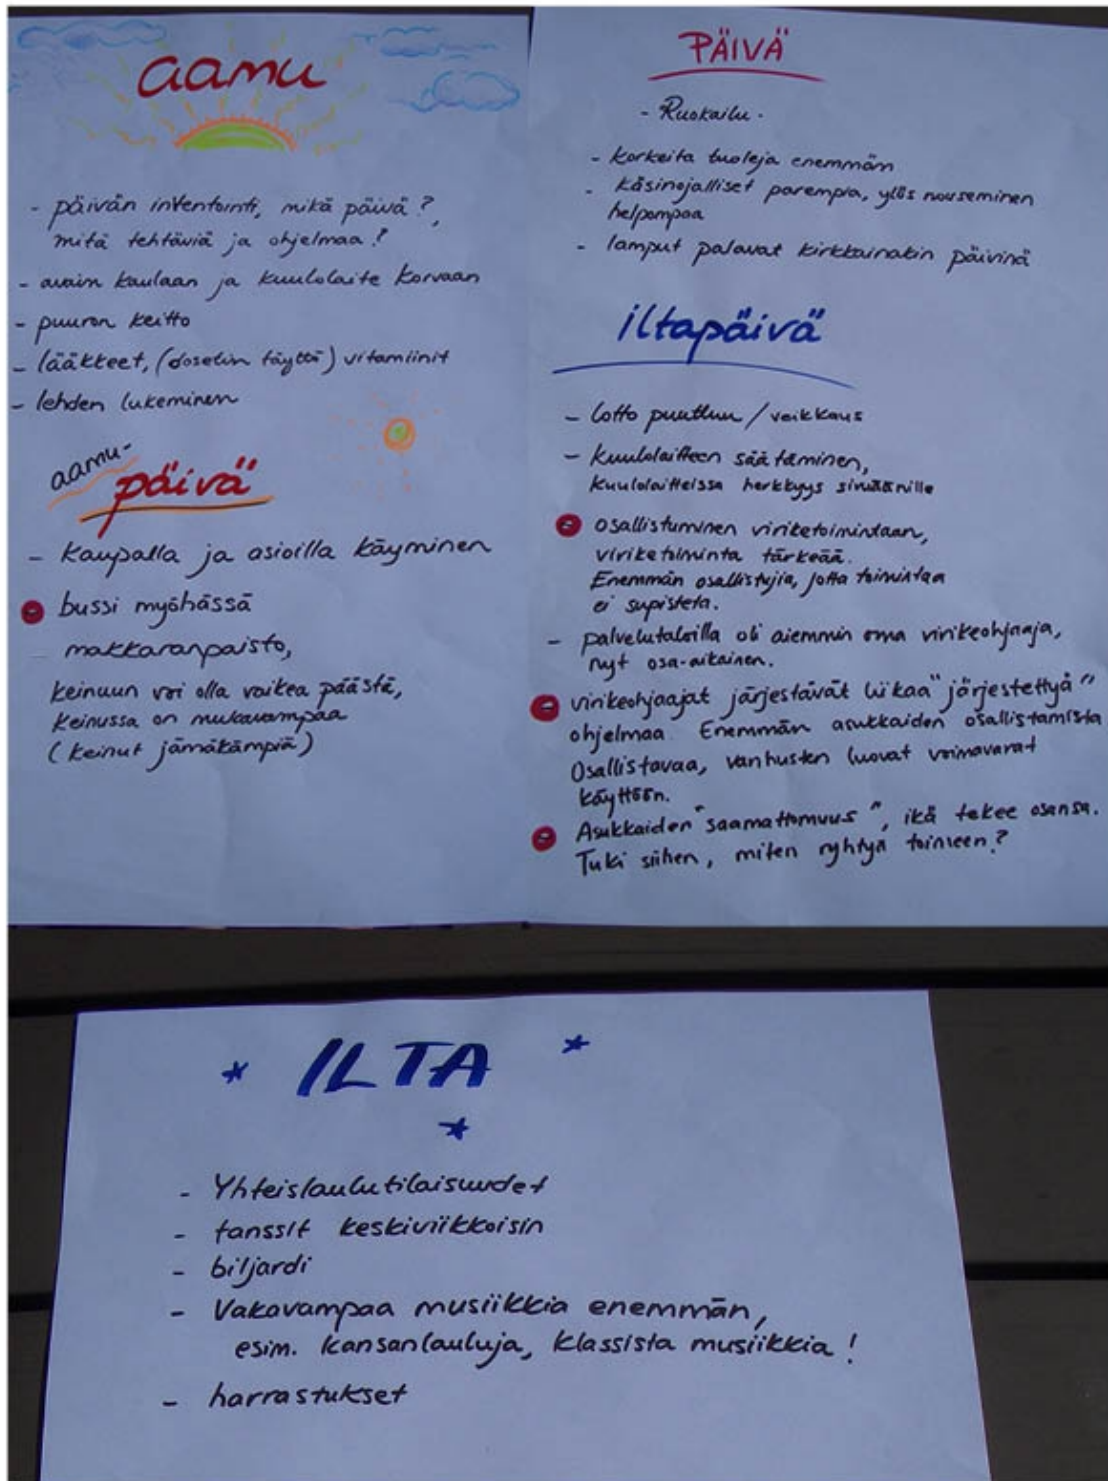 aamu
- päivän inventointi, mikä päivä?,
mitä tehtäviä ja ohjelmaa?
- avain kaulaan ja kuulolaite korvaan
- puuron keitto
- lääkkeet, (dosetin täyttö) vitamiinit
- lehden lukeminen
aamu-
päivä
- kaupalla ja asioilla käyminen
- bussi myöhässä
- makkaranpaisto,
keinuun voi olla vaikea päästä,
keinussa on mukavampaa
(keinut jämäkämpiä)
PÄIVÄ
- Ruokailu -
- korkeita tuoleja enemmän
- käsinojalliset parempia, ylös nouseminen
helpompaa
- lamput palavat kirkkainakin päivinä
iltapäivä
- lotto puuttuu / veikkaus
- kuulolaitteen säätäminen,
kuulolaitteissa herkkyys sivuäänille
- osallistuminen viriketoimintaan,
viriketoiminta tärkeää.
Enemmän osallistujia, jotta toimintaa
ei supisteta.
- palvelutaloilla oli aiemmin oma virikeohjaaja,
nyt osa-aikainen.
- virikeohjaajat järjestävät liikaa "järjestettyä"
ohjelmaa. Enemmän asukkaiden osallistamista
Osallistavaa, vanhusten luovat voimavarat
käyttöön.
- Asukkaiden "saamattomuus", ikä tekee osansa.
Tuki siihen, miten ryhtyä toimeen?
* ILTA *
*
- Yhteislaulutilaisuudet
- tanssit keskiviikkoisin
- biljardi
- Vakavampaa musiikkia enemmän,
esim. kansanlauluja, klassista musiikkia!
- harrastukset